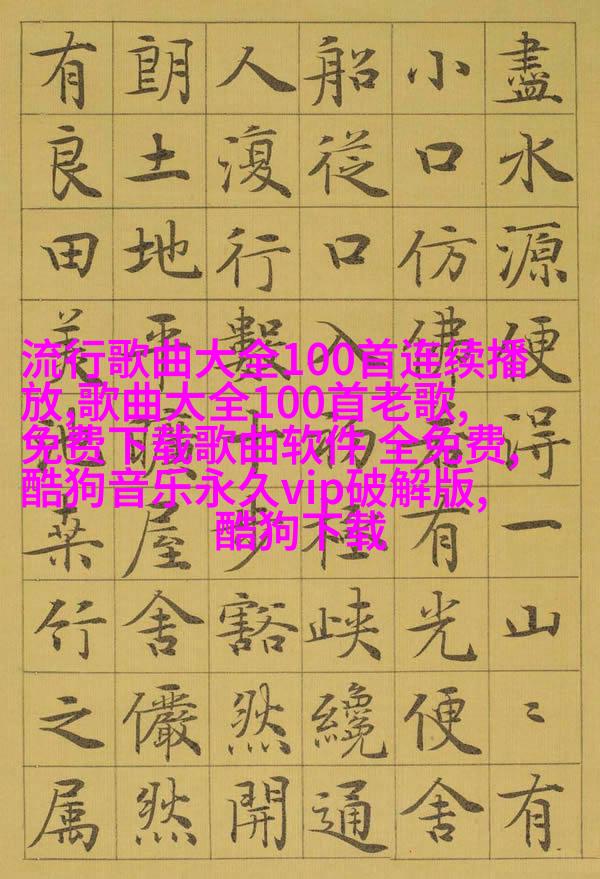 盡水源便得一山〻有
小口仿佛若有光便舍
船從口入初極峽纔通
人復行數十步豁然開
朗土地平曠屋舍儼然
有良田美池桑竹之属
流行歌曲大全100首连续播
放,歌曲大全100首老歌,
免费下载歌曲软件 全免费,
酷狗音乐永久vip破解版,
酷狗下载